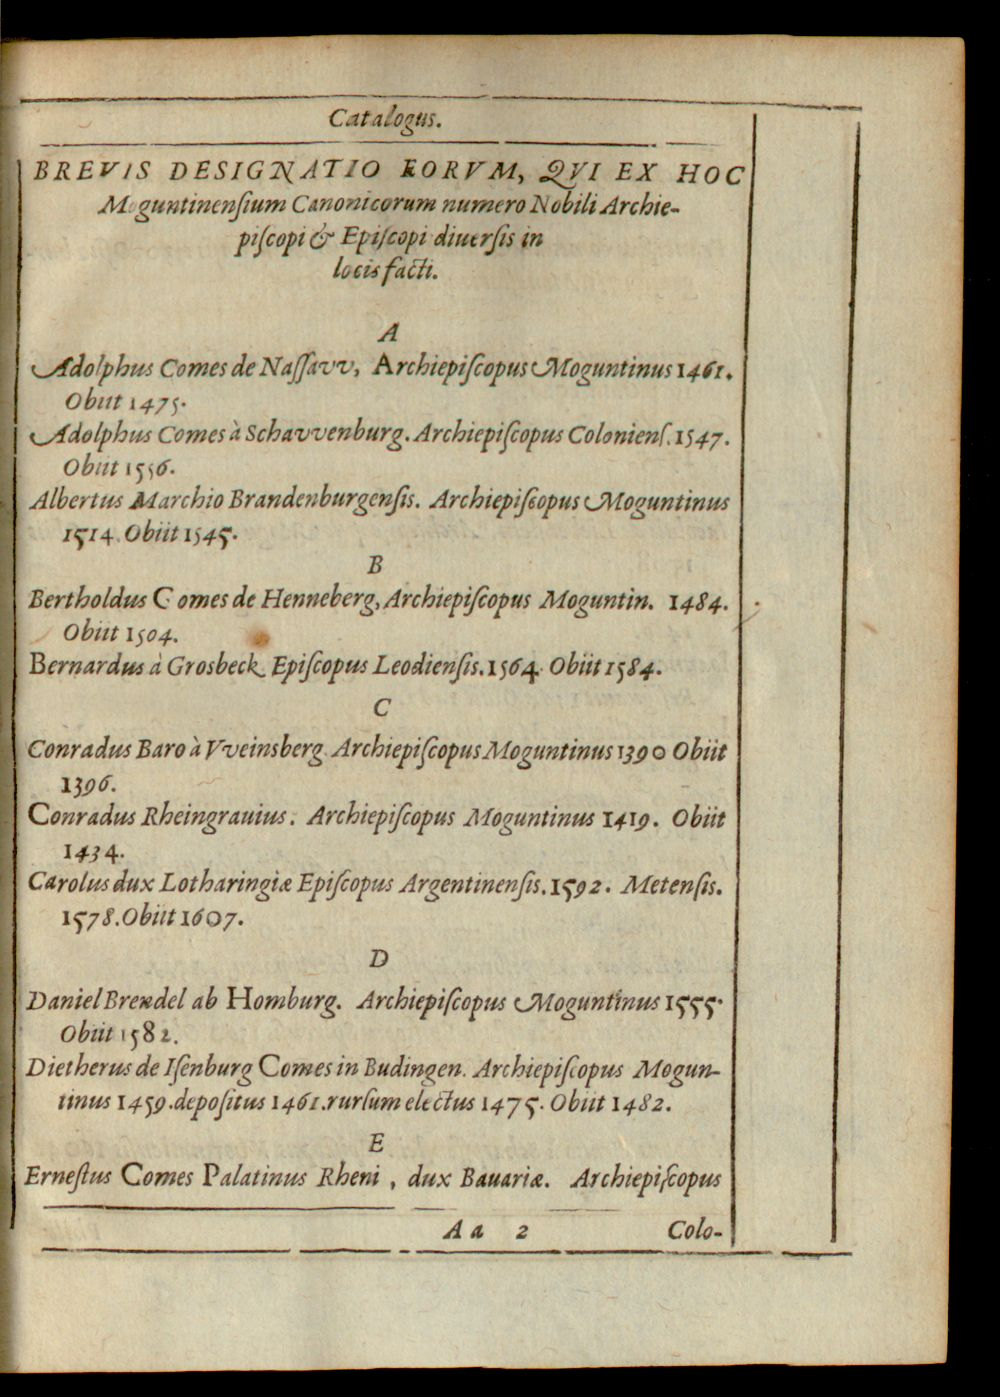 Catalogus.
BREVIS DESIGNATIO EORVM, QVI EX HOC
Moguntinensium Canonicorum numero Nobili Archie-
piscopi & Episcopi diuersis in
locis facti.
A
Adolphus Comes de Nassavv, Archiepiscopus Moguntinus 1461.
Obiit 1475.
Adolphus Comes à Schavvenburg. Archiepiscopus Coloniens. 1547.
Obiit 1556.
Albertus Marchio Brandenburgensis. Archiepiscopus Moguntinus
1514. Obiit 1545.
B
Bertholdus Comes de Henneberg, Archiepiscopus Moguntin. 1484.
Obiit 1504.
Bernardus à Grosbeck Episcopus Leodiensis. 1564 Obiit 1584.
C
Conradus Baro à Vveinsberg Archiepiscopus Moguntinus 1390 Obiit
1396.
Conradus Rheingrauius. Archiepiscopus Moguntinus 1419. Obiit
1434.
Carolus dux Lotharingiæ Episcopus Argentinensis. 1592. Metensis.
1578. Obiit 1607.
D
Daniel Brendel ab Homburg. Archiepiscopus Moguntinus 1555.
Obiit 1582.
Dietherus de Isenburg Comes in Budingen. Archiepiscopus Mogun-
tinus 1459. depositus 1461. rursum electus 1475. Obiit 1482.
E
Ernestus Comes Palatinus Rheni, dux Bauariæ. Archiepiscopus
Aa 2 Colo-